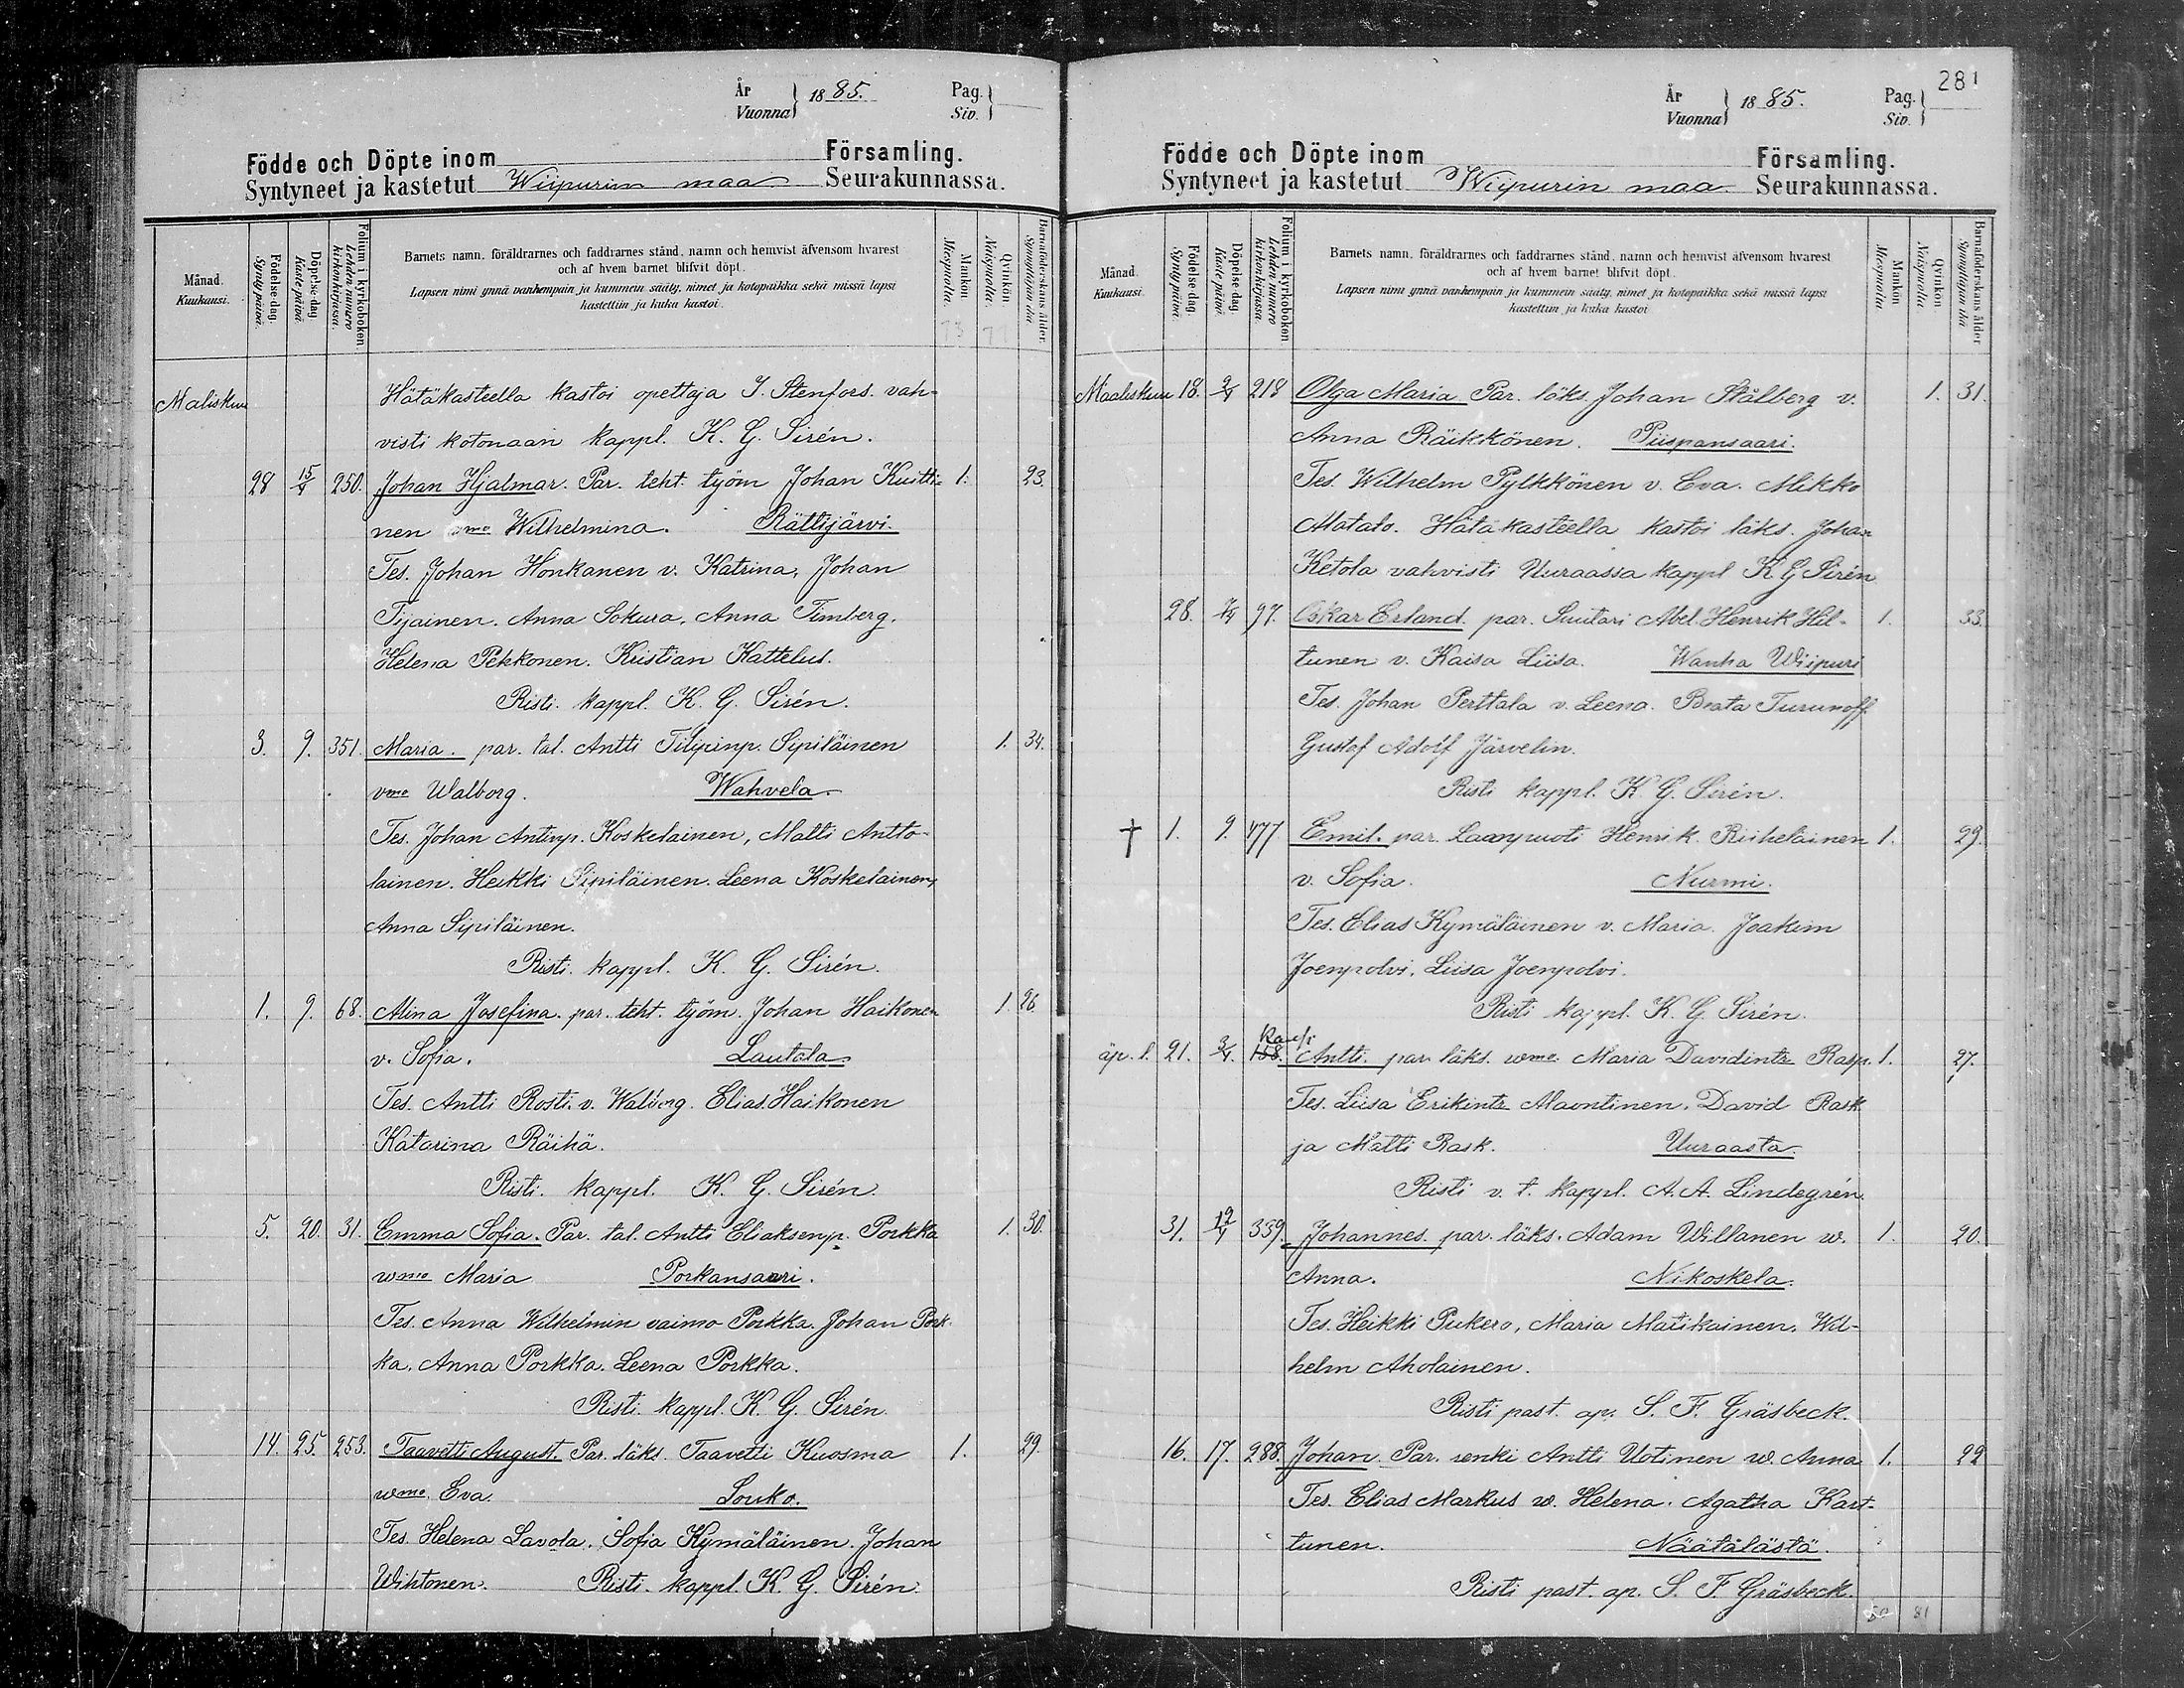 År
Vuonna } 1885.
Pag.
Siv. }
Födde och Döpte inom Församling.
Syntyneet ja kastetut Wiipurin maa Seurakunnassa.
Månad.
Kuukausi.
Födelse dag.
Synty päivä.
Döpelse dag
Kaste päivä.
Folium i kyrkoboken
Lehden numero kirkonkirjassa.
Barnets namn, föräldrarnes och faddrarnes stånd, namn och hemvist äfvensom hvarest
och af hvem barnet blifvit döpt.
Lapsen nimi ynnä vanhempain ja kummein sääty, nimet ja kotopaikka sekä missä lapsi
kastettiin ja kuka kastoi.
Mankön.
Miespuolta.
Qvinkön
Naispuolta.
Barnaföderskans ålder.
Synnyttäjän ikä
Maliskuu Hätäkasteella kastoi opettaja J. Stenfors. vah-
visti kotonaan kappl. K. G. Sirén.
28 15/4 250. Johan Hjalmar. Par. teht. työm Johan Kuitti- 1. 23.
nen vmo Wilhelmina. Rättijärvi.
Tes. Johan Honkanen v. Katrina, Johan
Tijainen. Anna Sokura, Anna Timberg.
Helena Pekkonen. Kristian Kattelus.
Risti. kappl. K. G. Sirén.
3. 9. 351. Maria. par. tal. Antti Filipinp. Sipiläinen 1. 34.
vmo Walborg. Wahvela
Tes. Johan Antinp. Koskelainen, Matti Antto-
lainen. Heikki Sipiläinen. Leena Koskelainen,
Anna Sipiläinen.
Risti. kappl. K. G. Sirén.
1. 9. 68. Alina Josefina. par. teht. työm. Johan Haikonen 1. 26.
v. Sofia. Lautala
Tes. Antti Rosti. v. Walborg. Elias Haikonen
Katarina Räihä.
Risti. kappl. K. G. Sirén.
5. 20. 31. Emma Sofia. Par. tal. Antti Eliaksenp. Porkka 1. 30.
wmo Maria Porkansaari.
Tes. Anna Wilhelmin vaimo Porkka. Johan Pork-
ka. Anna Porkka. Leena Porkka.
Risti. kappl. K. G. Sirén
14. 25. 253. Taavetti August. Par. läks. Taavetti Kuosma 1. 29.
wmo. Eva. Souko.
Tes. Helena Lavola. Sofia Kymäläinen. Johan
Wihtonen. Risti. kappl. K. G. Sirén.
281
År
Vuonna } 1885.
Pag.
Siv. }
Födde och Döpte inom Församling.
Syntyneet ja kastetut Wiipurin maa Seurakunnassa.
Månad.
Kuukausi.
Födelse dag.
Synty päivä.
Döpelse dag
Kaste päivä.
Folium i kyrkoboken
Lehden numero kirkonkirjassa.
Barnets namn, föräldrarnes och faddrarnes stånd, namn och hemvist äfvensom hvarest
och af hvem barnet blifvit döpt.
Lapsen nimi ynnä vanhempain ja kummein sääty, nimet ja kotopaikka sekä missä lapsi
kastettiin ja kuka kastoi
Mankön
Miespuolta
Qvinkön.
Naispuolta.
Barnaföderskans ålder
Synnyttäjän ikä
Maaliskuu 18. 218 Olga Maria Par. läks. Johan Stålberg v. 1. 31.
Anna Räikkönen. Piispansaari.
Tes. Wilhelm Pylkkönen v. Eva. Mikko
Matato. Hätäkasteella kastoi läks. Johan
Ketola vahvisti Uuraassa kappl K G Sirén
28. 97. Oskar Erland. par. Suutari Abel Henrik Hil- 1. 33.
tunen v. Kaisa Liisa. Wanha Wiipuri
Tes. Johan Perttala v. Leena. Beata Turunoff.
Gustaf Adolf Järvelin.
Risti kappl. K. G. Sirén.
† 1. 9. 477 Emil. par. Lampuoti Henrik Riiheläinen 1. 29.
v. Sofia. Nurmi.
Tes. Elias Kymäläinen v. Maria. Joakim
Joenpolvi. Liisa Joenpolvi.
Risti kappl. K. G. Sirén.
äp. l. 21. 158. Antti. par. läks. wmo. Maria Davidintr Rasp. 1. 27.
Tes. Liisa Erikintr Maontinen. David Rask
ja Matti Rask. Uuraasta.
Risti v. t. kappl. A. A. Lindegrén.
31. 12/4 339. Johannes. par. läks. Adam Willanen w. 1. 20.
Anna. Nikoskela.
Tes. Heikki Pukero, Maria Matikainen. Wil-
helm Aholainen.
Risti past. ap. S. F. Gräsbeck.
16. 17. 288. Johan Par. renki Antti Uotinen w. Anna 1. 22
Tes. Elias Markus w. Helena. Agatha Kart-
tunen. Näätälästä.
Risti past. ap. S. F. Gräsbeck.
81